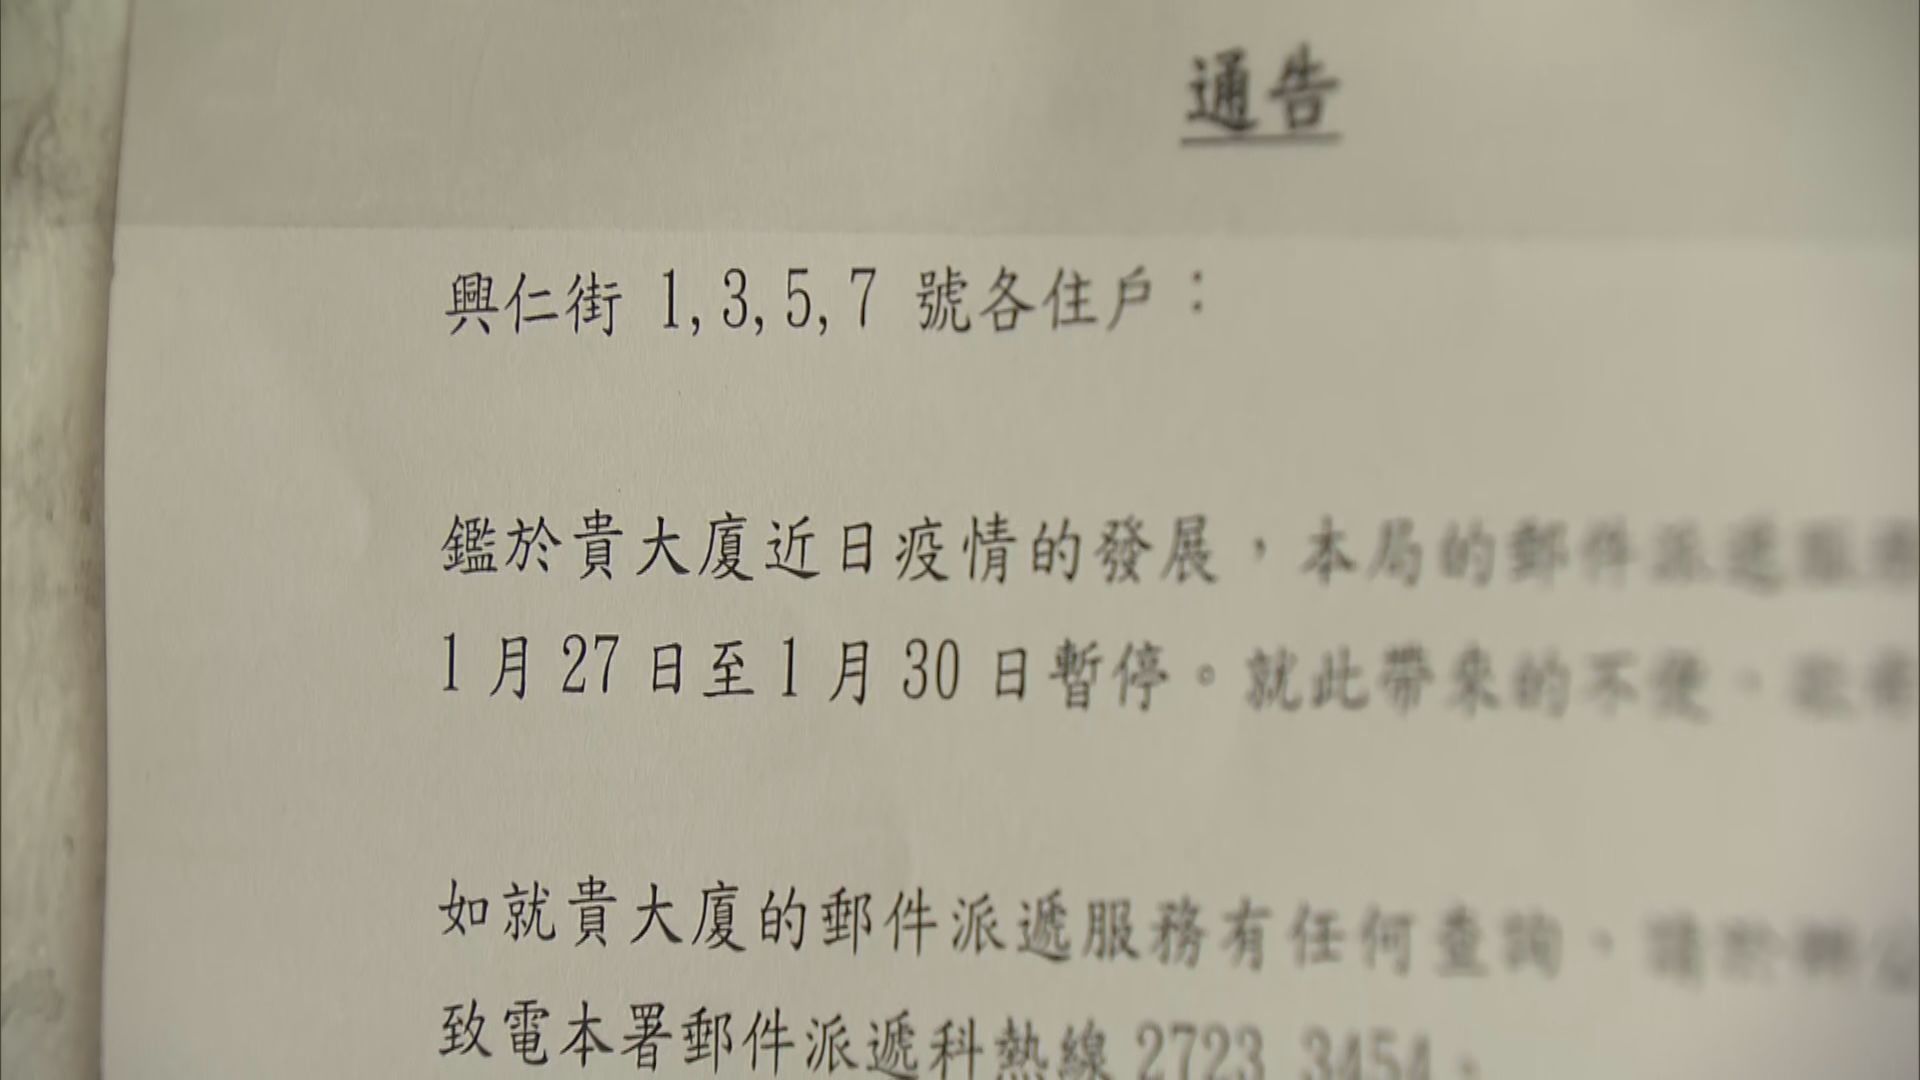 通告
興仁街 1,3,5,7 號各住戶：
鑑於貴大廈近日疫情的發展，本局的郵件派遞服務
1 月 27 日至 1 月 30 日暫停。就此帶來的不便，敬希
如就貴大廈的郵件派遞服務有任何查詢，請於辦公
致電本署郵件派遞科熱線 2723 3454。